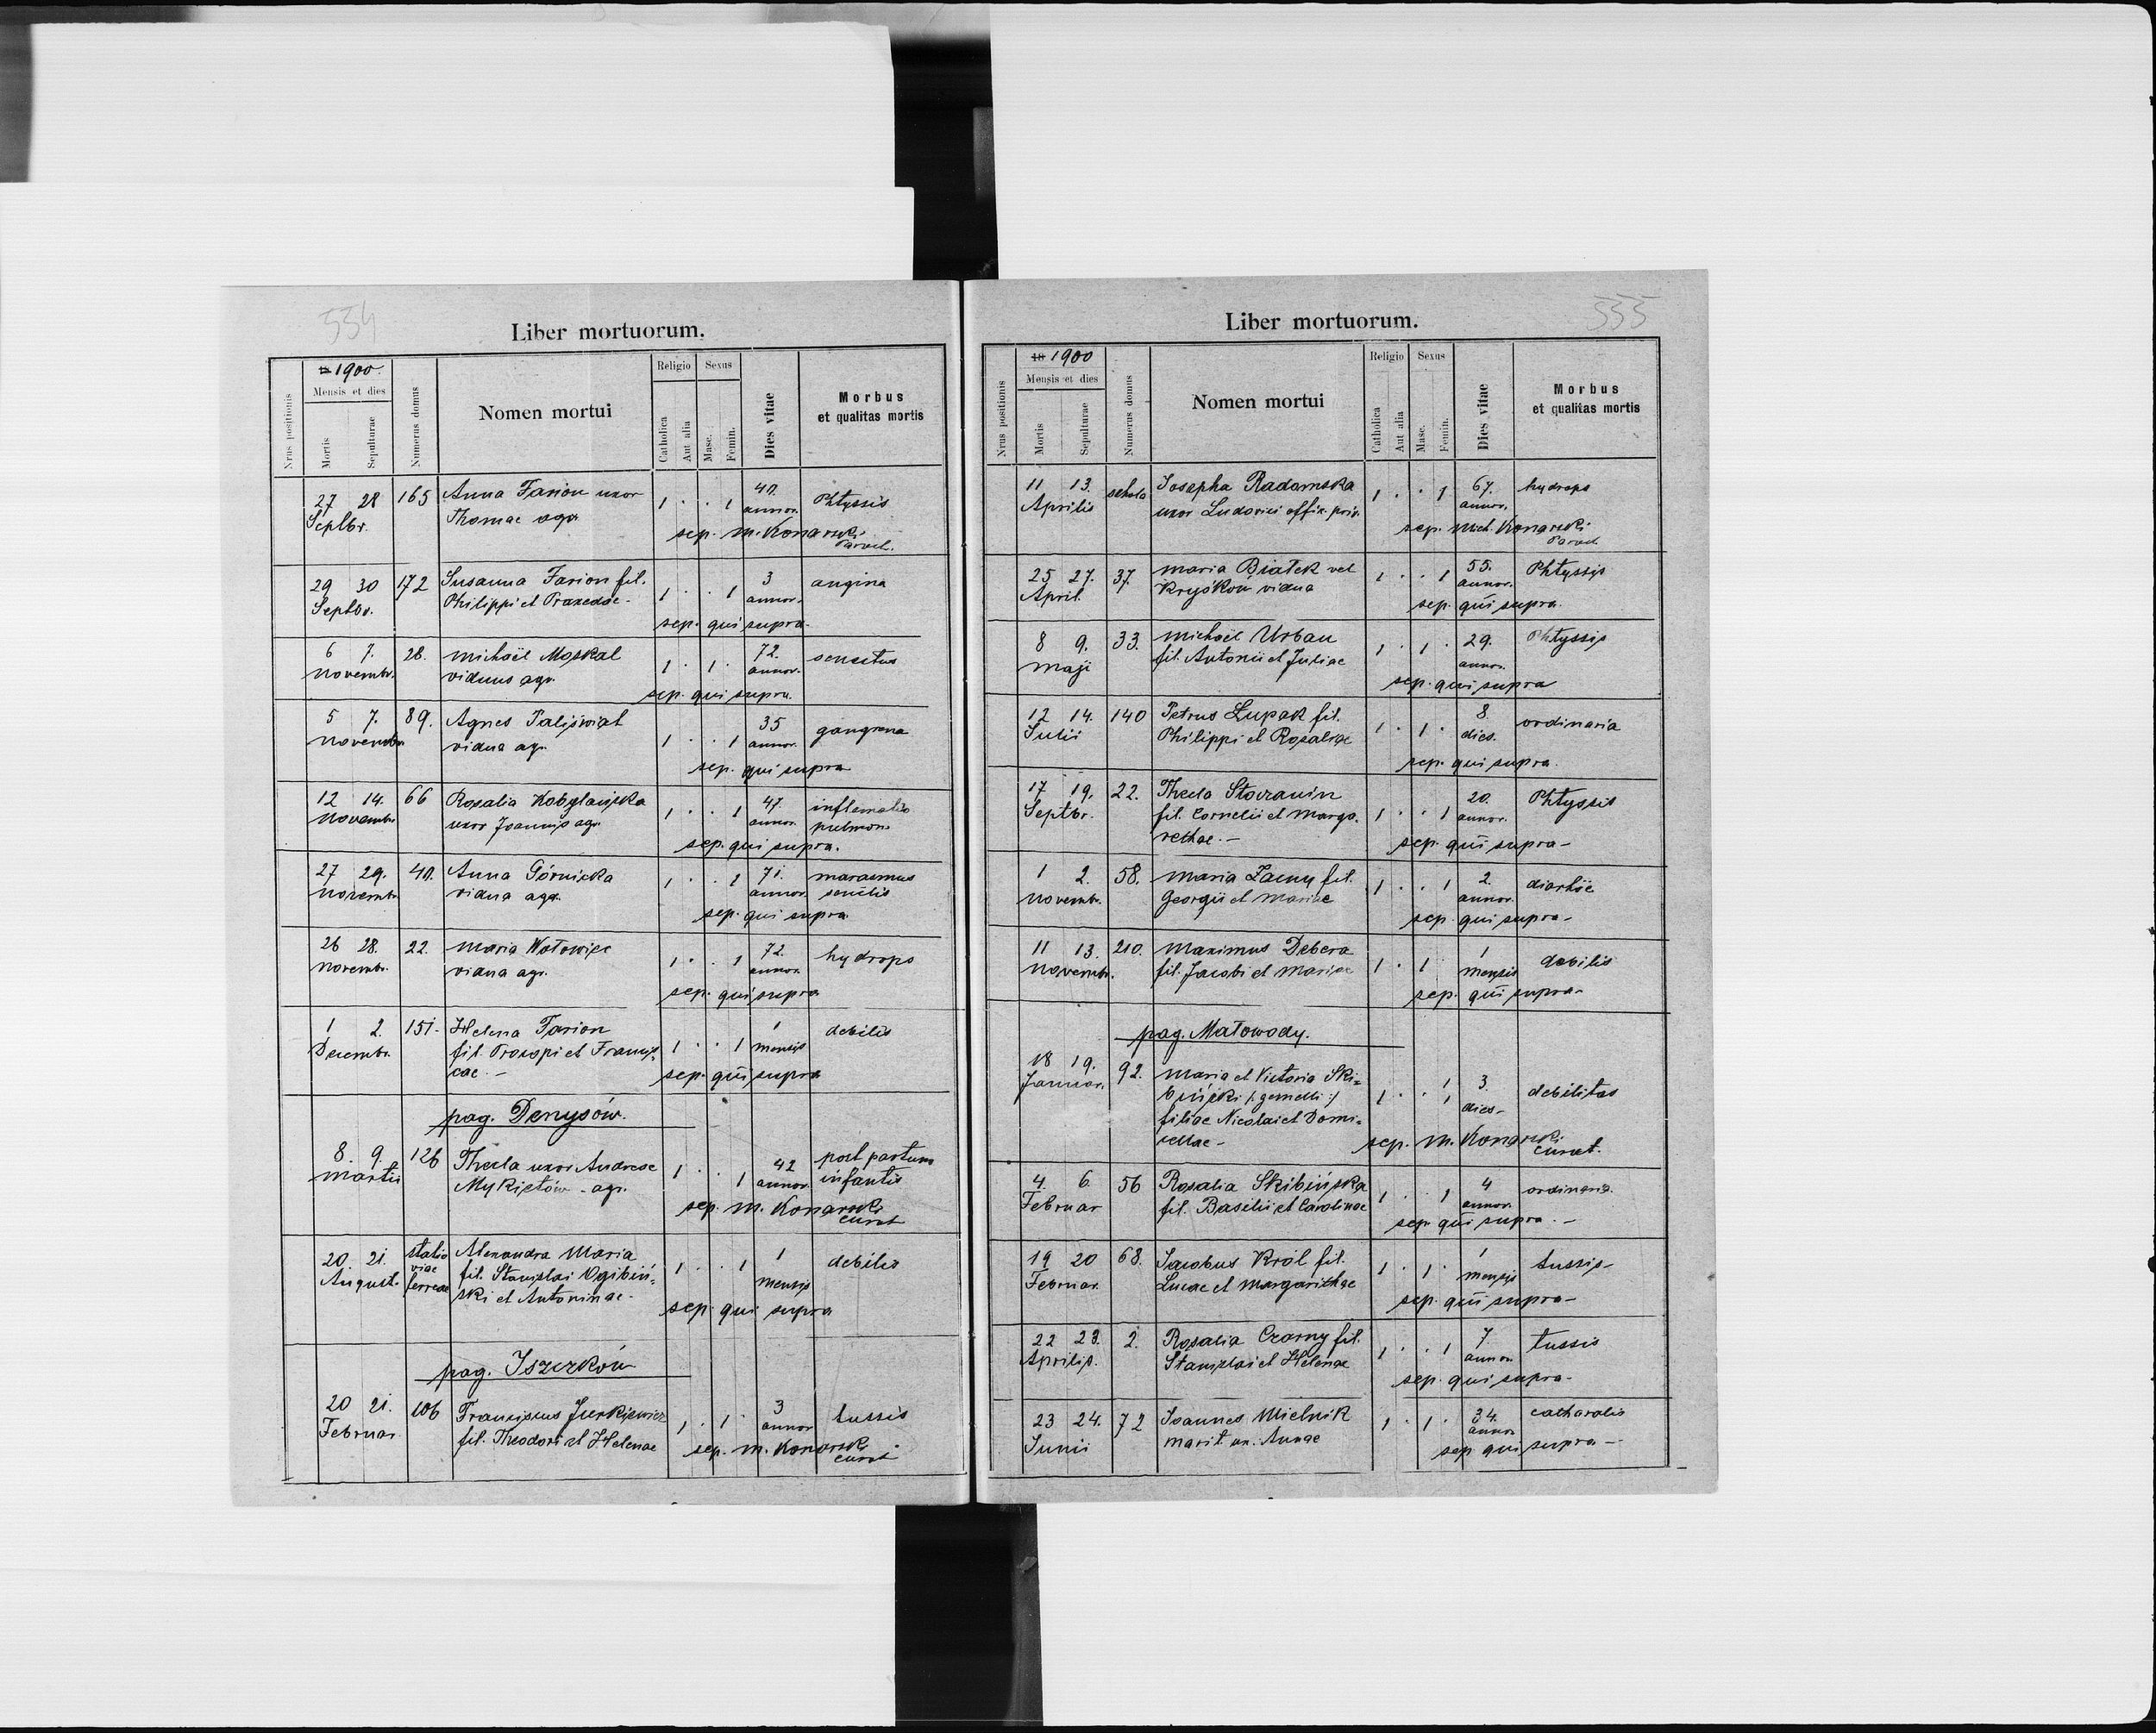 554
Liber mortuorum.
Nrus positionis
18 1900.
Mensis et dies
Mortis
Sepulturae
Numerus domus
Nomen mortui
Religio
Catholica
Aut alia
Sexus
Masc.
Femin.
Dies vitae
Morbus
et qualitas mortis
27 28 165 Anna Farion uxor 1 . . 1 40. Phtyssis
Septbr. Thomae agr. annor.
sep. M. Konarski
Paroch.
29 30 172 Susanna Farion fil. 1 . . 1 3 angina
Septbr. Philippi et Praxedae - annor.
sep. qui supra.
6 7. 28. Michaël Moskal 1 . 1 . 72. senectus
Novembr. viduus agr. annor.
sep. qui supra.
5 7. 89. Agnes Paliświat 1 . . 1 35 gangrena
Novembr. vidua agr. annor.
sep. qui supra
12 14. 66 Rosalia Kobylańska 1 . . 1 47. inflamatio
Novembr. uxor Joannis agr. annor. pulmon.
sep. qui supra.
27 29. 40. Anna Górnicka 1 . . 1 71. marasmus
Novembr. vidua agr. annor. senilis
sep. qui supra
26 28. 22. Maria Wołowiec 1 . . 1 72. hydrops
Novembr. vidua agr. annor.
sep. qui supra
1 2. 151. Helena Farion 1 . . 1 1 debilis
Decembr. fil. Procopi et Francis- mensis
cae. -
sep. qui supra
pag. Denysów.
8. 9. 126 Thecla uxor Andreae 1 . . 1 42 post partum
Martii Mykietów - agr. annor. infantis
sep. M. Konarski
curat
20. 21. statio Alexandra Maria 1 . . 1 1 debilis
August. viae fil. Stanislai Ogibiń- mensis
ferreae ski et Antoninae -
sep. qui supra
pag. Iszczków
20 21. 106 Franciscus Jurkiewicz 1 . 1 . 3 tussis
Februar. fil. Theodori et Helenae annor
sep. M. Konarski
curat
555
Liber mortuorum.
Nrus positionis
18 1900
Mensis et dies
Mortis
Sepulturae
Numerus domus
Nomen mortui
Religio
Catholica
Aut alia
Sexus
Masc.
Femin.
Dies vitae
Morbus
et qualitas mortis
11 13. schola Josepha Radomska 1 . . 1 67. hydrops
Aprilis uxor Ludovici offic. priv. annor.
sep. Mich. Konarski
Paroch
25 27. 37. Maria Białek vel 1 . . 1 55. Phtyssis
April. Kryśków vidua annor.
sep. qui supra.
8 9. 33. Michaël Urban 1 . 1 . 29. Phtyssis
Maji fil. Antonii et Juliae annor.
sep. qui supra
12 14. 140 Petrus Łupak fil. 1 . 1 . 8. ordinaria
Julii Philippi et Rosaliae dies.
sep. qui supra.
17 19. 22. Thecla 1 . . 1 20. Phtyssis
Septbr. fil. Cornelii et Marga- annor.
rethae. -
sep. qui supra -
1 2. 58. Maria fil. 1 . . 1 2. diarhöe
Novembr. Georgii et Mariae annor.
sep. qui supra -
11 13. 210. Maximus Debera 1 . 1 1 debilis
Novembr. fil. Jacobi et Mariae mensis
sep. qui supra -
pag. Małowody.
18 19. 92. Maria et Victoria Ski- 1 . . 1 3 debilitas
Januar. biński /: gemelli :/ 1 dies -
filiae Nicolai et Domi-
cellae - sep. M. Konarski
curat.
4. 6. 56 Rosalia Skibińska 1 . . 1 4 ordinaria.
Februar fil. Basilii et Carolinae annor.
sep. qui supra. -
19 20 68. Jacobus Król fil. 1 . 1 . 1 tussis -
Februar. Lucae et Margarithae mensis
sep. qui supra -
22 23. 2. Rosalia Czarny fil. 1 . . 1 7 tussis
Aprilis. Stanislai et Helenae annor.
sep. qui supra -
23 24. 72 Joannes Mielnik 1 . 1 . 34. catharalis
Junii marit. ux. Annae annor
sep. qui supra -